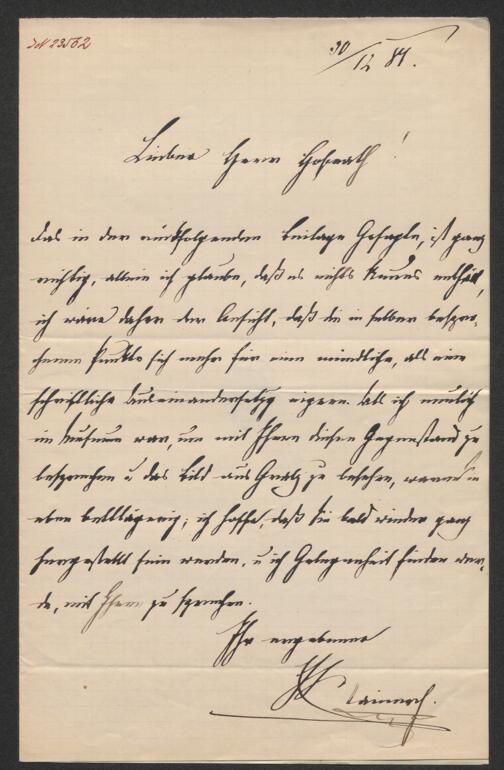 IN 23562
30/12 84.
Lieber Herr Hofrath!
Das in der rückfolgenden Beilage Gesagte, ist ganz
richtig, allein ich glaube, daß es nichts Neues enthält,
ich wäre daher der Ansicht, daß die in selber bespro-
chenen Punkte sich mehr für eine mündliche, als eine
schriftliche Auseinandersetzg eignen. Als ich neulich
im Museum war, um mit Ihnen diesen Gegenstand zu
besprechen u das Bild aus Gratz zu besehen, waren Sie
eben bettlägerig; ich hoffe, daß Sie bald wieder ganz
hergestellt sein werden, u ich Gelegenheit finden wer-
de, mit Ihnen zu sprechen.
Ihr ergebener